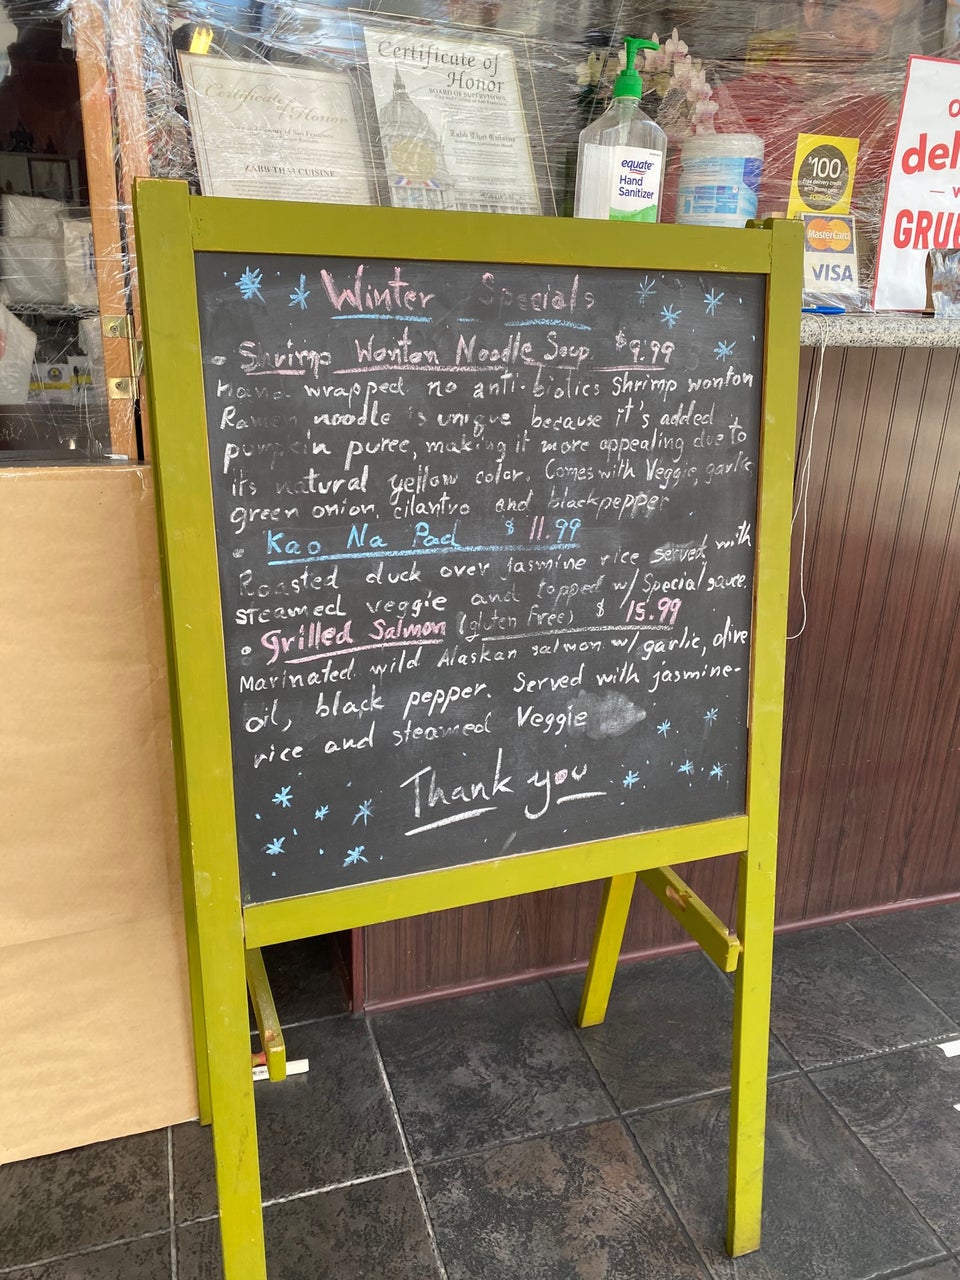 Certificate of Honor
ZABB THAI CUISINE
Certificate of
Honor
BOARD OF SUPERVISORS
City and County of San Francisco
Zabb Thai Cuisine
equate
Hand
Sanitizer
$100
Free delivery credit
MasterCard
VISA
Winter Specials
• Shrimp Wonton Noodle Soup $9.99
Hand wrapped no anti-biotics Shrimp wonton
Ramen noodle is unique because it's added
pumpkin puree, making it more appealing due to
its natural yellow color. Comes with Veggie, garlic
green onion, cilantro and blackpepper.
• Kao Na Pad $ 11.99
Roasted duck over jasmine rice served with
steamed veggie and topped w/ Special sauce.
• Grilled Salmon (gluten free) $ 15.99
Marinated wild Alaskan salmon w/ garlic, olive
oil, black pepper. Served with jasmine-
rice and steamed Veggie
Thank you